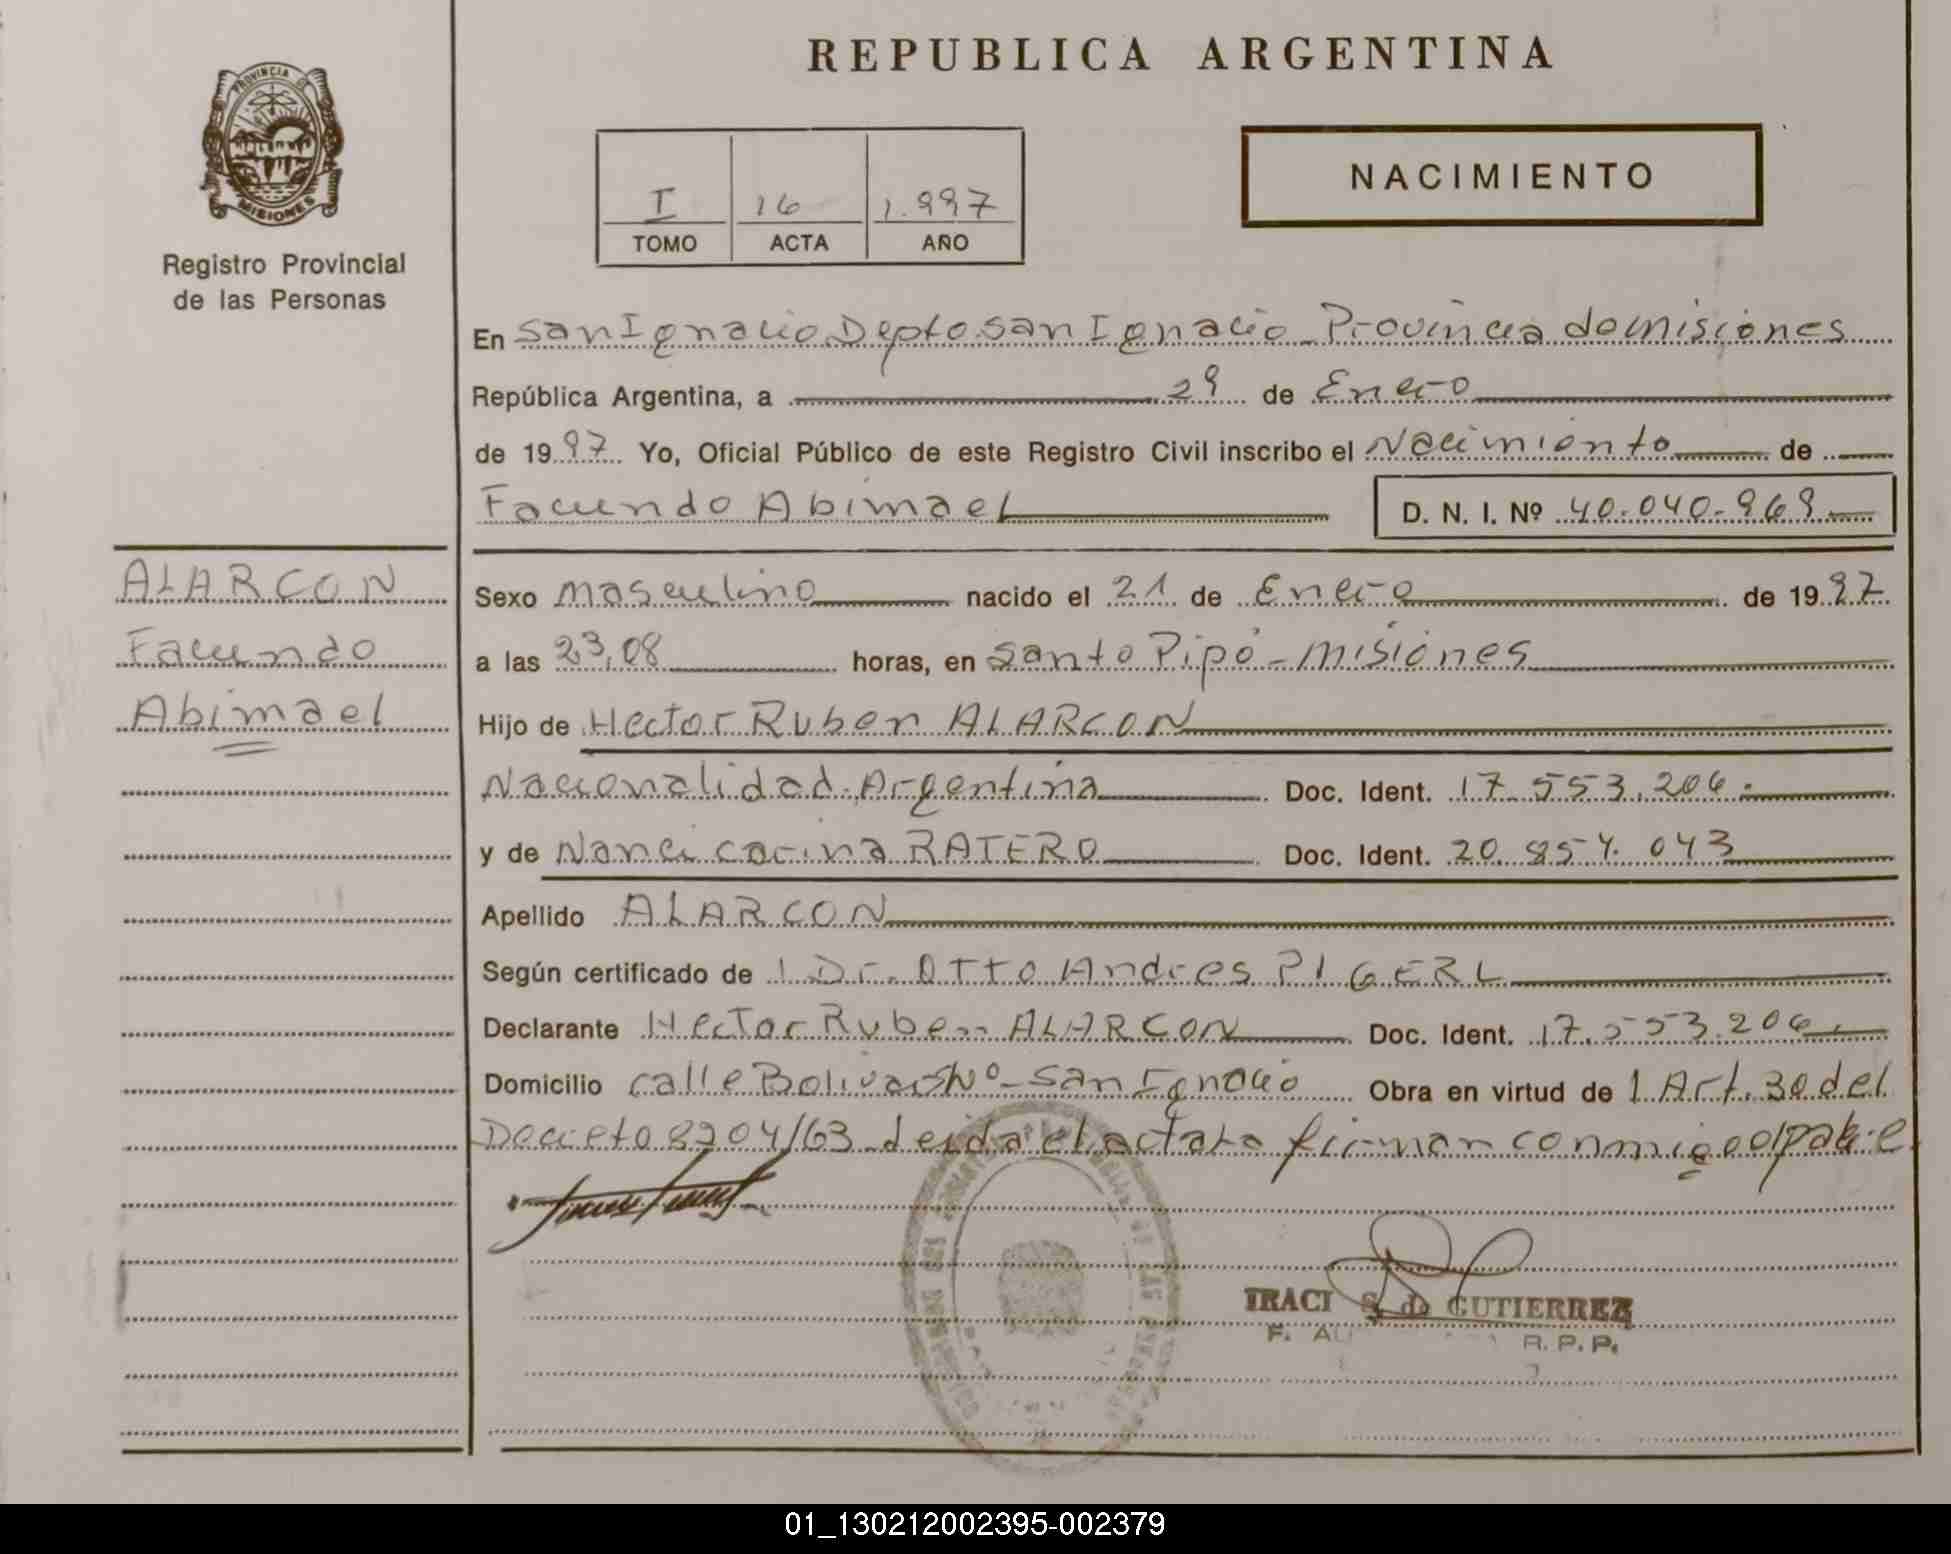 REPUBLICA ARGENTINA
PROVINCIA DE
MISIONES
Registro Provincial
de las Personas
I 16 1.997
TOMO ACTA AÑO
NACIMIENTO
En San Ignacio Depto San Ignacio Provincia de misiones
República Argentina, a 29 de Enero
de 1997 Yo, Oficial Público de este Registro Civil inscribo el Nacimiento de
Facundo Abimael D. N. I. Nº 40.040.969
ALARCON
Facundo
Abimael
Sexo masculino nacido el 21 de Enero de 1997
a las 23,08 horas, en Santo Pipó - misiones
Hijo de Hector Ruben ALARCON
Nacionalidad Argentina Doc. Ident. 17.553.206
y de Nanci carina RATERO Doc. Ident. 20.854.043
Apellido ALARCON
Según certificado de l Dr. Otto Andres PIGERL
Declarante Hector Ruben ALARCON Doc. Ident. 17.553.206
Domicilio calle Bolivar S/Nº - San Ignacio Obra en virtud de l Art. 30 del
Decreto 8204/63 leida el acta la firman conmigo el padre
IRACI S. de GUTIERREZ
R. P. P.
01_130212002395-002379